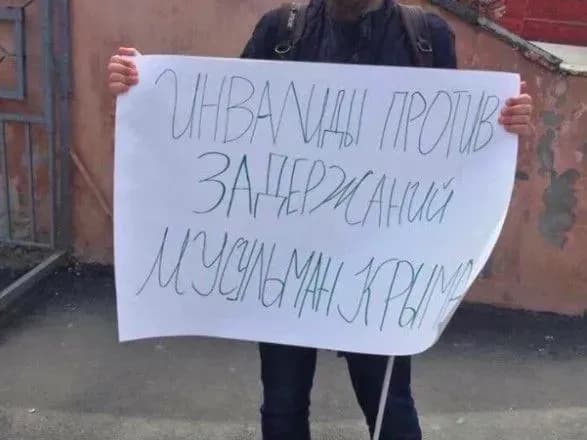 ИНВАЛИДЫ ПРОТИВ
ЗАДЕРЖАНИЙ
МУСУЛЬМАН КРЫМА